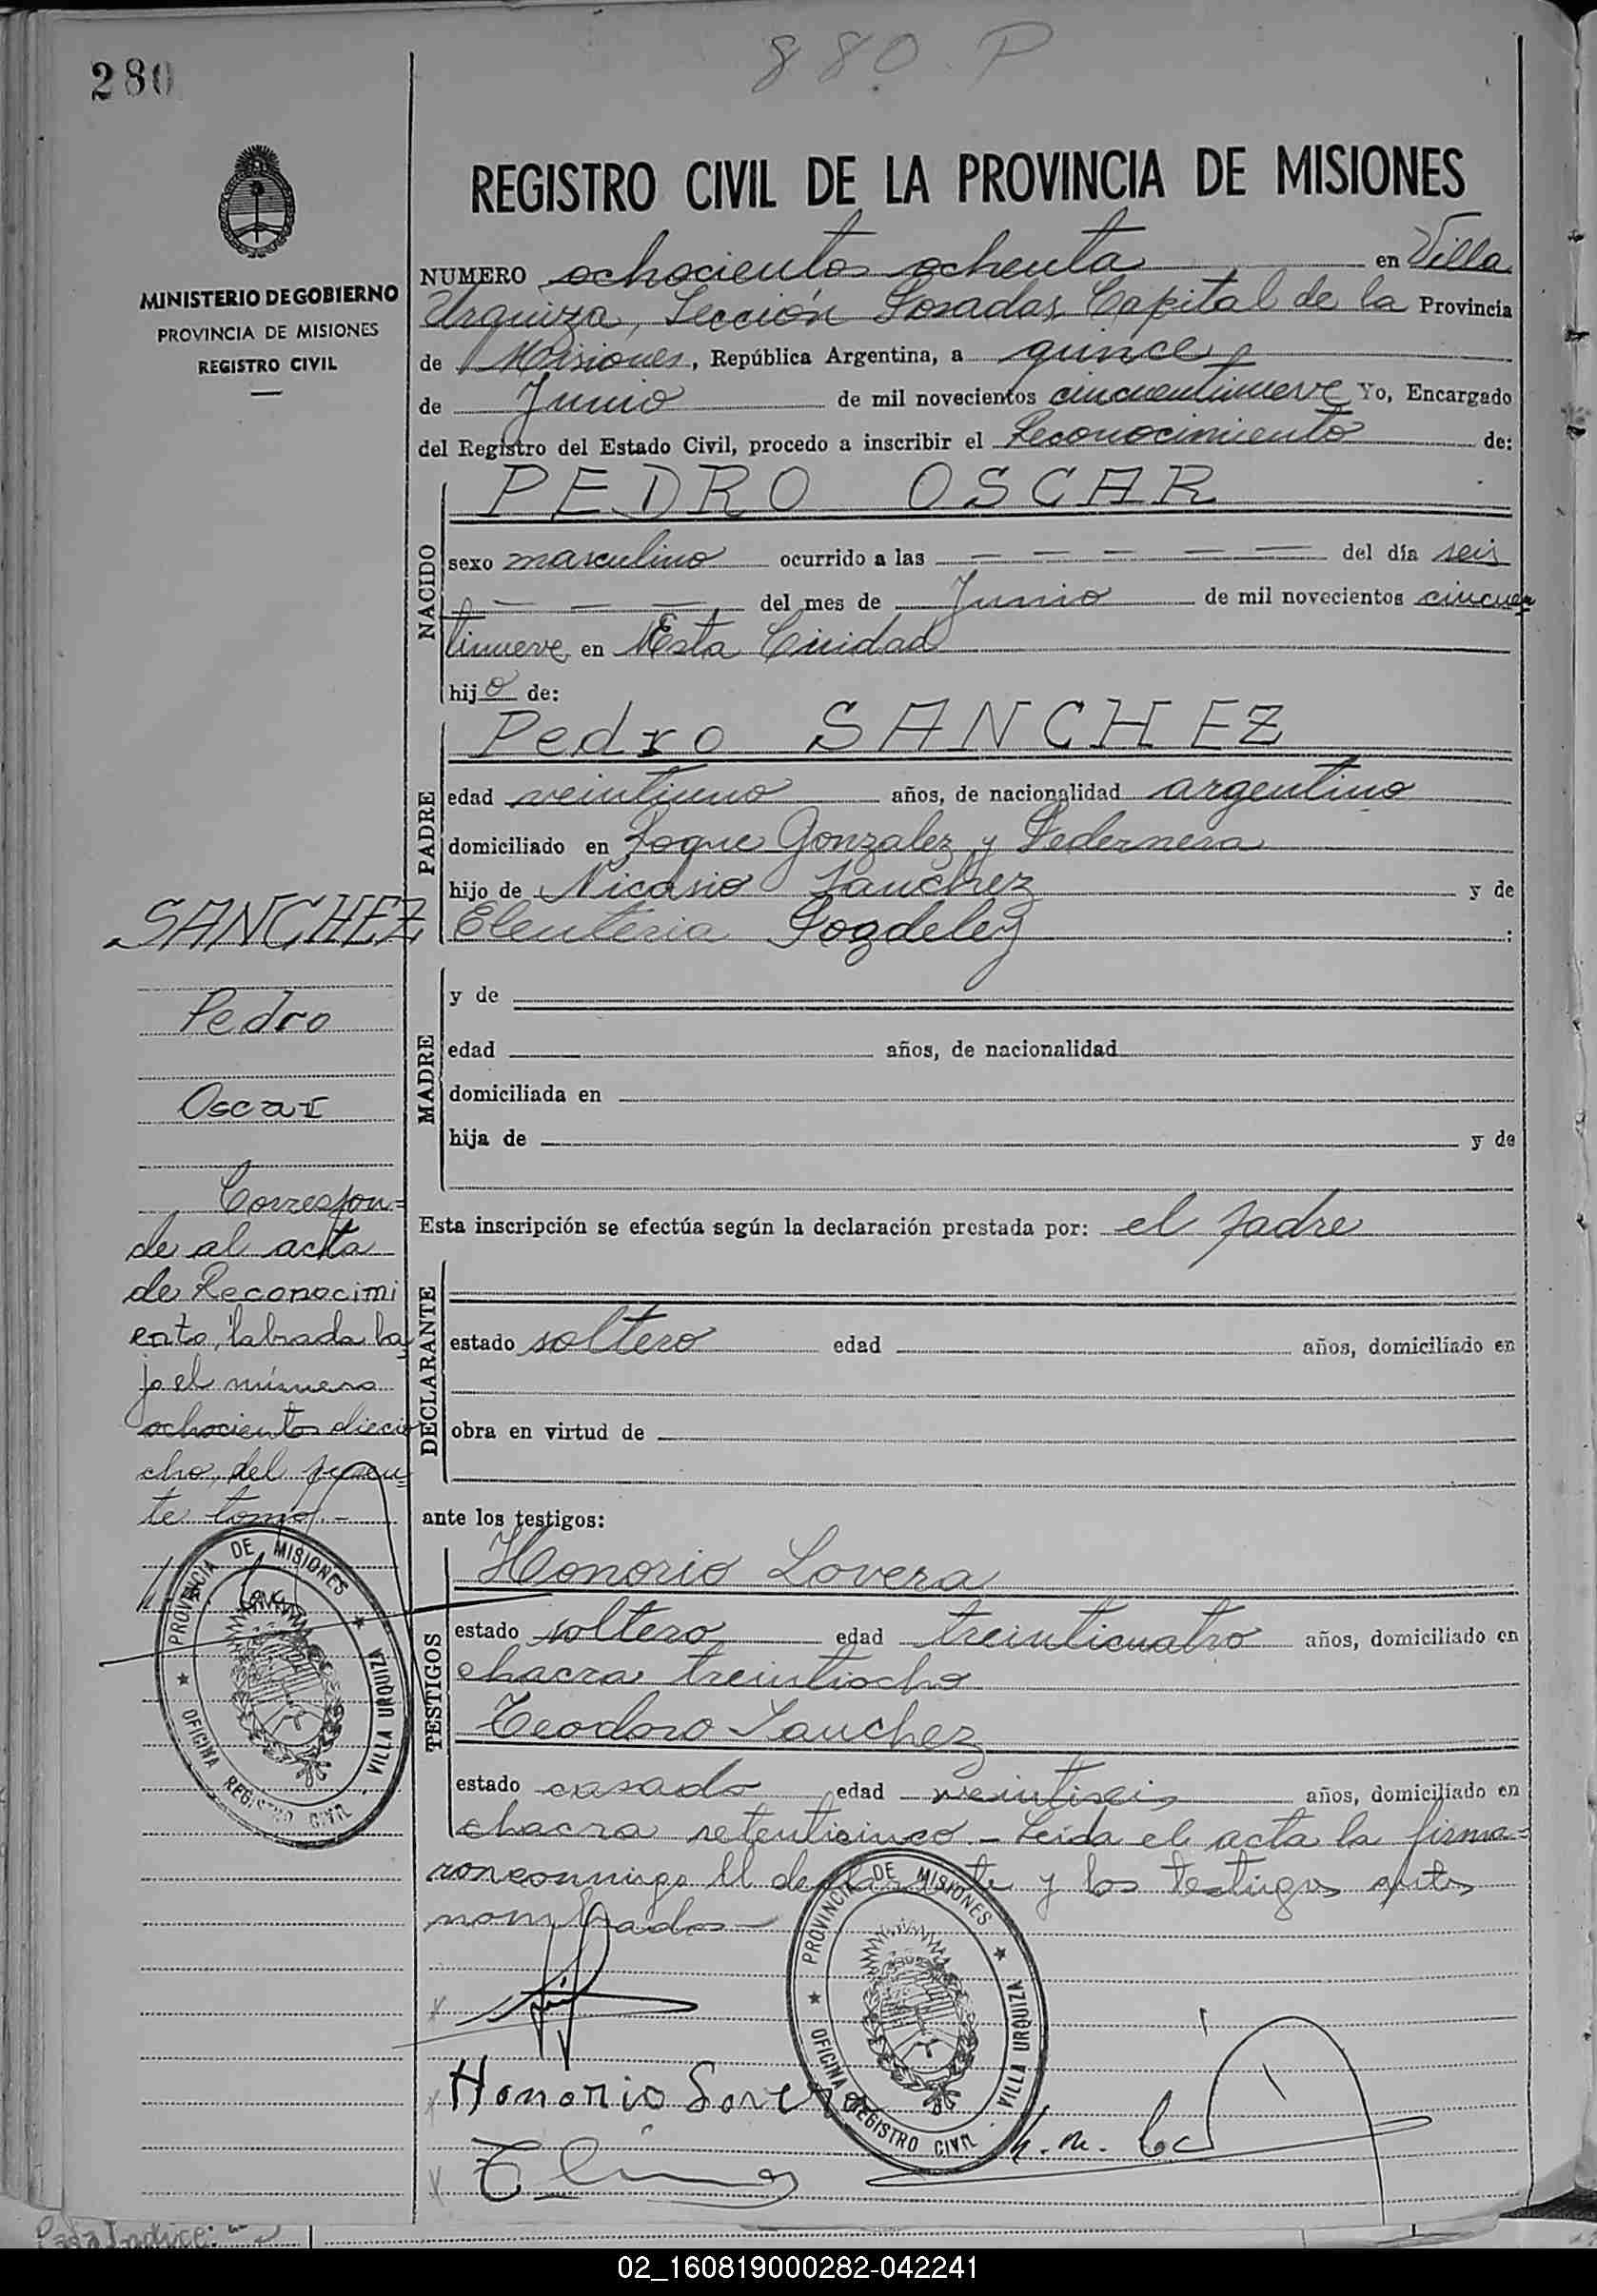 880. P
280
MINISTERIO DE GOBIERNO
PROVINCIA DE MISIONES
REGISTRO CIVIL
REGISTRO CIVIL DE LA PROVINCIA DE MISIONES
NUMERO ochocientos ochenta en Villa
Urquiza, Sección Posadas, Capital de la Provincia
de Misiones, República Argentina, a quince
de Junio de mil novecientos cincuentinueve Yo, Encargado
del Registro del Estado Civil, procedo a inscribir el Reconocimiento de:
NACIDO
PEDRO OSCAR
sexo masculino ocurrido a las — — — — — del día seis
— — — del mes de Junio de mil novecientos cincuen
tinueve en Esta Ciudad
hijo de:
PADRE
Pedro SANCHEZ
edad veintiuno años, de nacionalidad argentino
domiciliado en Roque Gonzalez y Pedernera
hijo de Nicasio Sanchez y de
Eleuteria
MADRE
y de
edad años, de nacionalidad
domiciliada en
hija de y de
Esta inscripción se efectúa según la declaración prestada por: el padre
DECLARANTE
estado soltero edad años, domiciliado en
obra en virtud de
ante los testigos:
TESTIGOS
Honorio Lovera
estado soltero edad treinticuatro años, domiciliado en
chacra treintiocho
Teodoro Sanchez
estado casado edad veintiseis años, domiciliado en
chacra setenticinco.- Leída el acta la firma=
ron conmigo el declarante y los testigos antes
nombrados-
Honorio Lovera
SANCHEZ
Pedro
Oscar
Correspon=
de al acta
de Reconocimi
ento, labrada ba
jo el número
ochocientos diecio
cho, del presen=
te tomo.-
PROVINCIA DE MISIONES
OFICINA REGISTRO CIVIL
VILLA URQUIZA
PROVINCIA DE MISIONES
OFICINA REGISTRO CIVIL
VILLA URQUIZA
Para Indice:
02_160819000282-042241